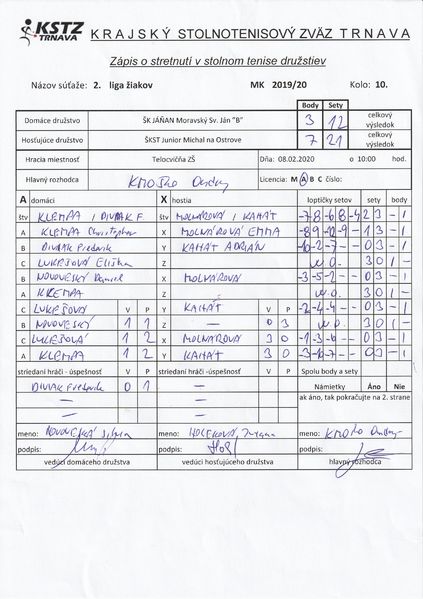 KSTZ TRNAVA
KRAJSKÝ STOLNOTENISOVÝ ZVÄZ TRNAVA
Zápis o stretnutí v stolnom tenise družstiev
Názov súťaže: 2. liga žiakov MK 2019/20 Kolo: 10.
Body Sety
Domáce družstvo ŠK JÁŇAN Moravský Sv. Ján "B" 3 12 celkový výsledok
Hosťujúce družstvo ŠKST Junior Michal na Ostrove 7 21 celkový výsledok
Hracia miestnosť Telocvičňa ZŠ Dňa: 08.02.2020 o 10:00 hod.
Hlavný rozhodca Licencia: M A B C číslo:
A domáci X hostia loptičky setov sety body
štv KLEMPA / DIVIAK F. štv MOLNÁROVÁ / KAHÁT -7 8 -6 8 -4 2 3 - 1
A KLEMPA Christopher X MOLNÁROVÁ EMMA -8 9 -12 -9 - 1 3 - 1
B DIVIAK Frederik Y KAHÁT ADRIÁN -10 -2 -7 - - 0 3 - 1
C LUKEŠOVÁ Eliška Z w.o. 3 0 1 -
B NOVOVESKÝ Daniel X MOLNÁROVÁ -3 -5 -2 - - 0 3 - 1
A KLEMPA Z w.o. 3 0 1 -
C LUKEŠOVÁ V P Y KAHÁT V P -2 -4 -4 - - 0 3 - 1
B NOVOVESKÝ 1 1 Z — 0 3 w.o. 3 0 1 -
C LUKEŠOVÁ 1 2 X MOLNÁROVÁ 3 0 -1 -3 -6 - - 0 3 - 1
A KLEMPA 1 2 Y KAHÁT 3 0 -3 -10 -7 - - 0 3 - 1
striedaní hráči - úspešnosť V P striedaní hráči - úspešnosť V P Spolu body a sety
DIVIAK Frederik 0 1 — Námietky Áno Nie
— — ak áno, tak pokračujte na 2. strane
— —
meno: NOVOVESKÁ meno: meno:
podpis: podpis: podpis:
vedúci domáceho družstva vedúci hosťujúceho družstva hlavný rozhodca